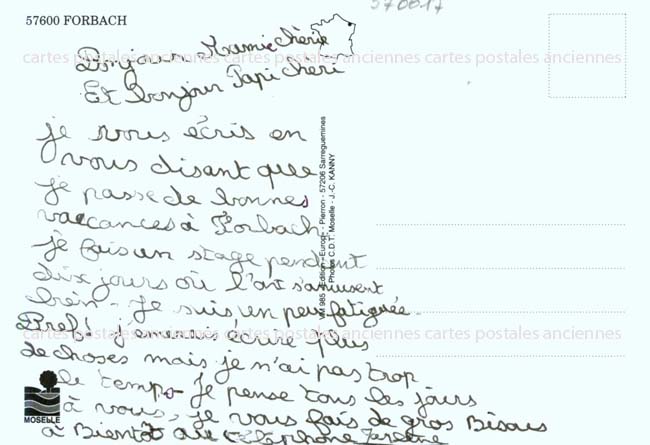 57600 FORBACH
570617
Bonjour Mamie chérie
Et bonjour Papi chéri
je vous écris en
vous disant que
je passe de bonnes
vaccances à Forbach.
je fais un stage pendant
dix jours où l'ont s'amusent
bien - Je suis un peux fatiguée.
Bref! j'aimerais écrire plus
de choses mais je n'ai pas trop
le temps. Je pense tous les jours
à vous, je vous fais de gros Bisous
à Bientôt au téléphone
MOSELLE
Edition « Europ » - Pierron - 57206 Sarreguemines
Photos C.D.T. Moselle - J.-C. KANNY
cartes postales anciennes cartes postales anciennes cartes postales anciennes
cartes postales anciennes cartes postales anciennes cartes postales anciennes